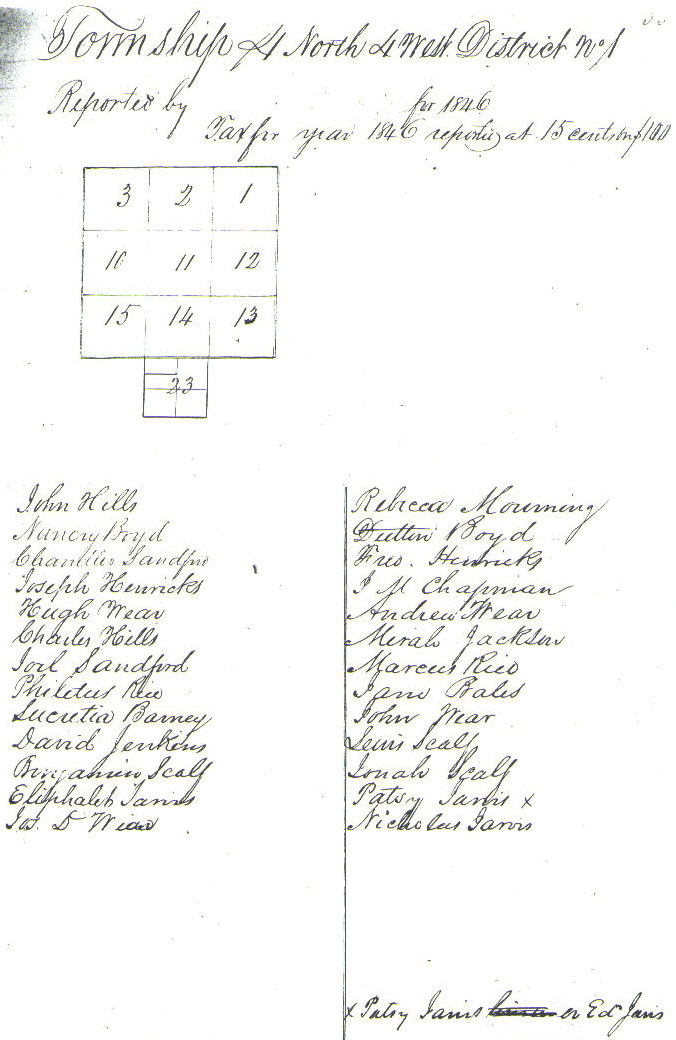 Township 4 North 4 West District No 1
Reported by for 1846
Tax for year 1846 reporting at 15 cents on $100
3 2 1
10 11 12
15 14 13
23
John Hills
Nancy Boyd
Sandford
Joseph Henricks
Hugh Wear
Charles Hills
Joel Sandford
Philetus Rice
Lucretia Barney
David Jenkins
Benjamin Scalf
Eliphalet Jarvis
Jos. D Wear
Rebecca Mourning
Dutton Boyd
Fred. Henricks
J M Chapman
Andrew Wear
Jackson
Marcus Rice
Jane Bales
John Wear
Lewis Scalf
Jonah Scalf
Patsy Jarvis x
Nicholas Jarvis
x Patsy Jarvis or Ed Jarvis